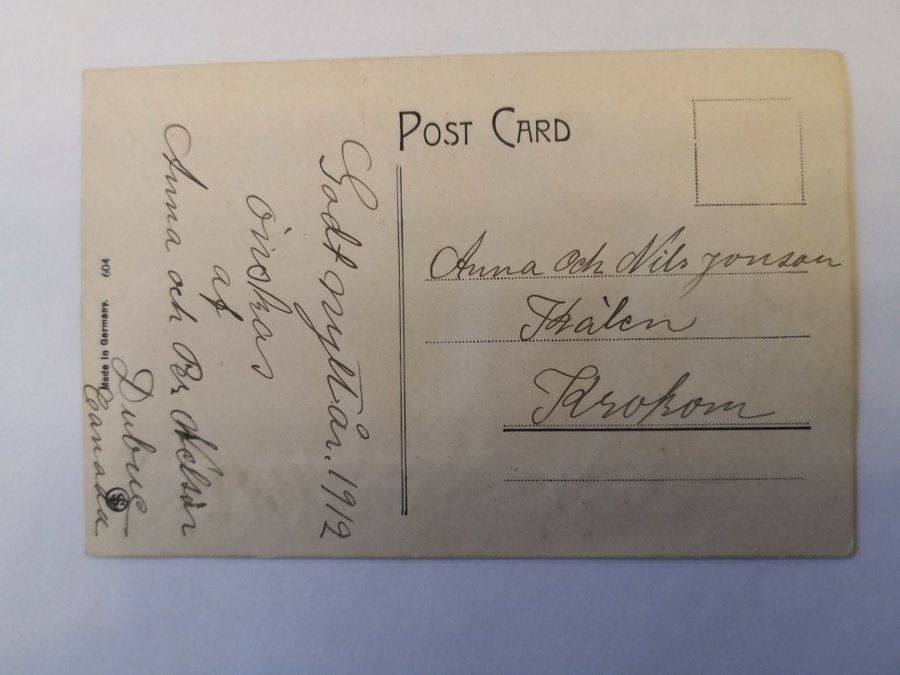 POST CARD
Godt nytt år. 1912
önskas
af
Anna och Per Nelson
Dubuc
Canada
Anna och Nils Jonson
Kålen
Krokom
Made in Germany. 604